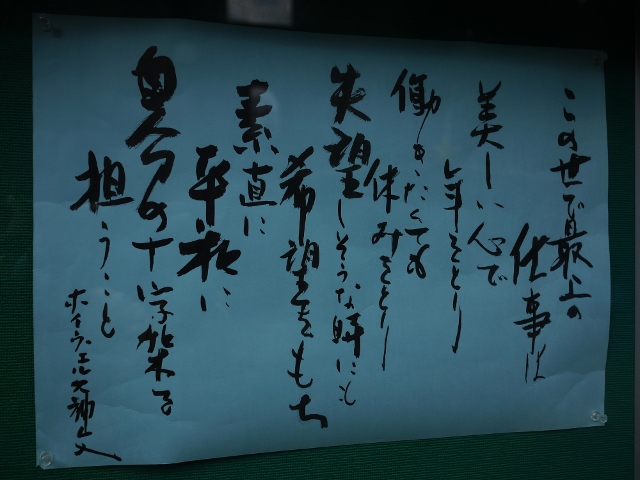 この世で最上の
仕事は
美しい心で
年をとり
働きたくても
休みをとり
失望しそうな時にも
希望をもち
素直に
平和に
自分の十字架を
担うこと
ホイヴェルス神父